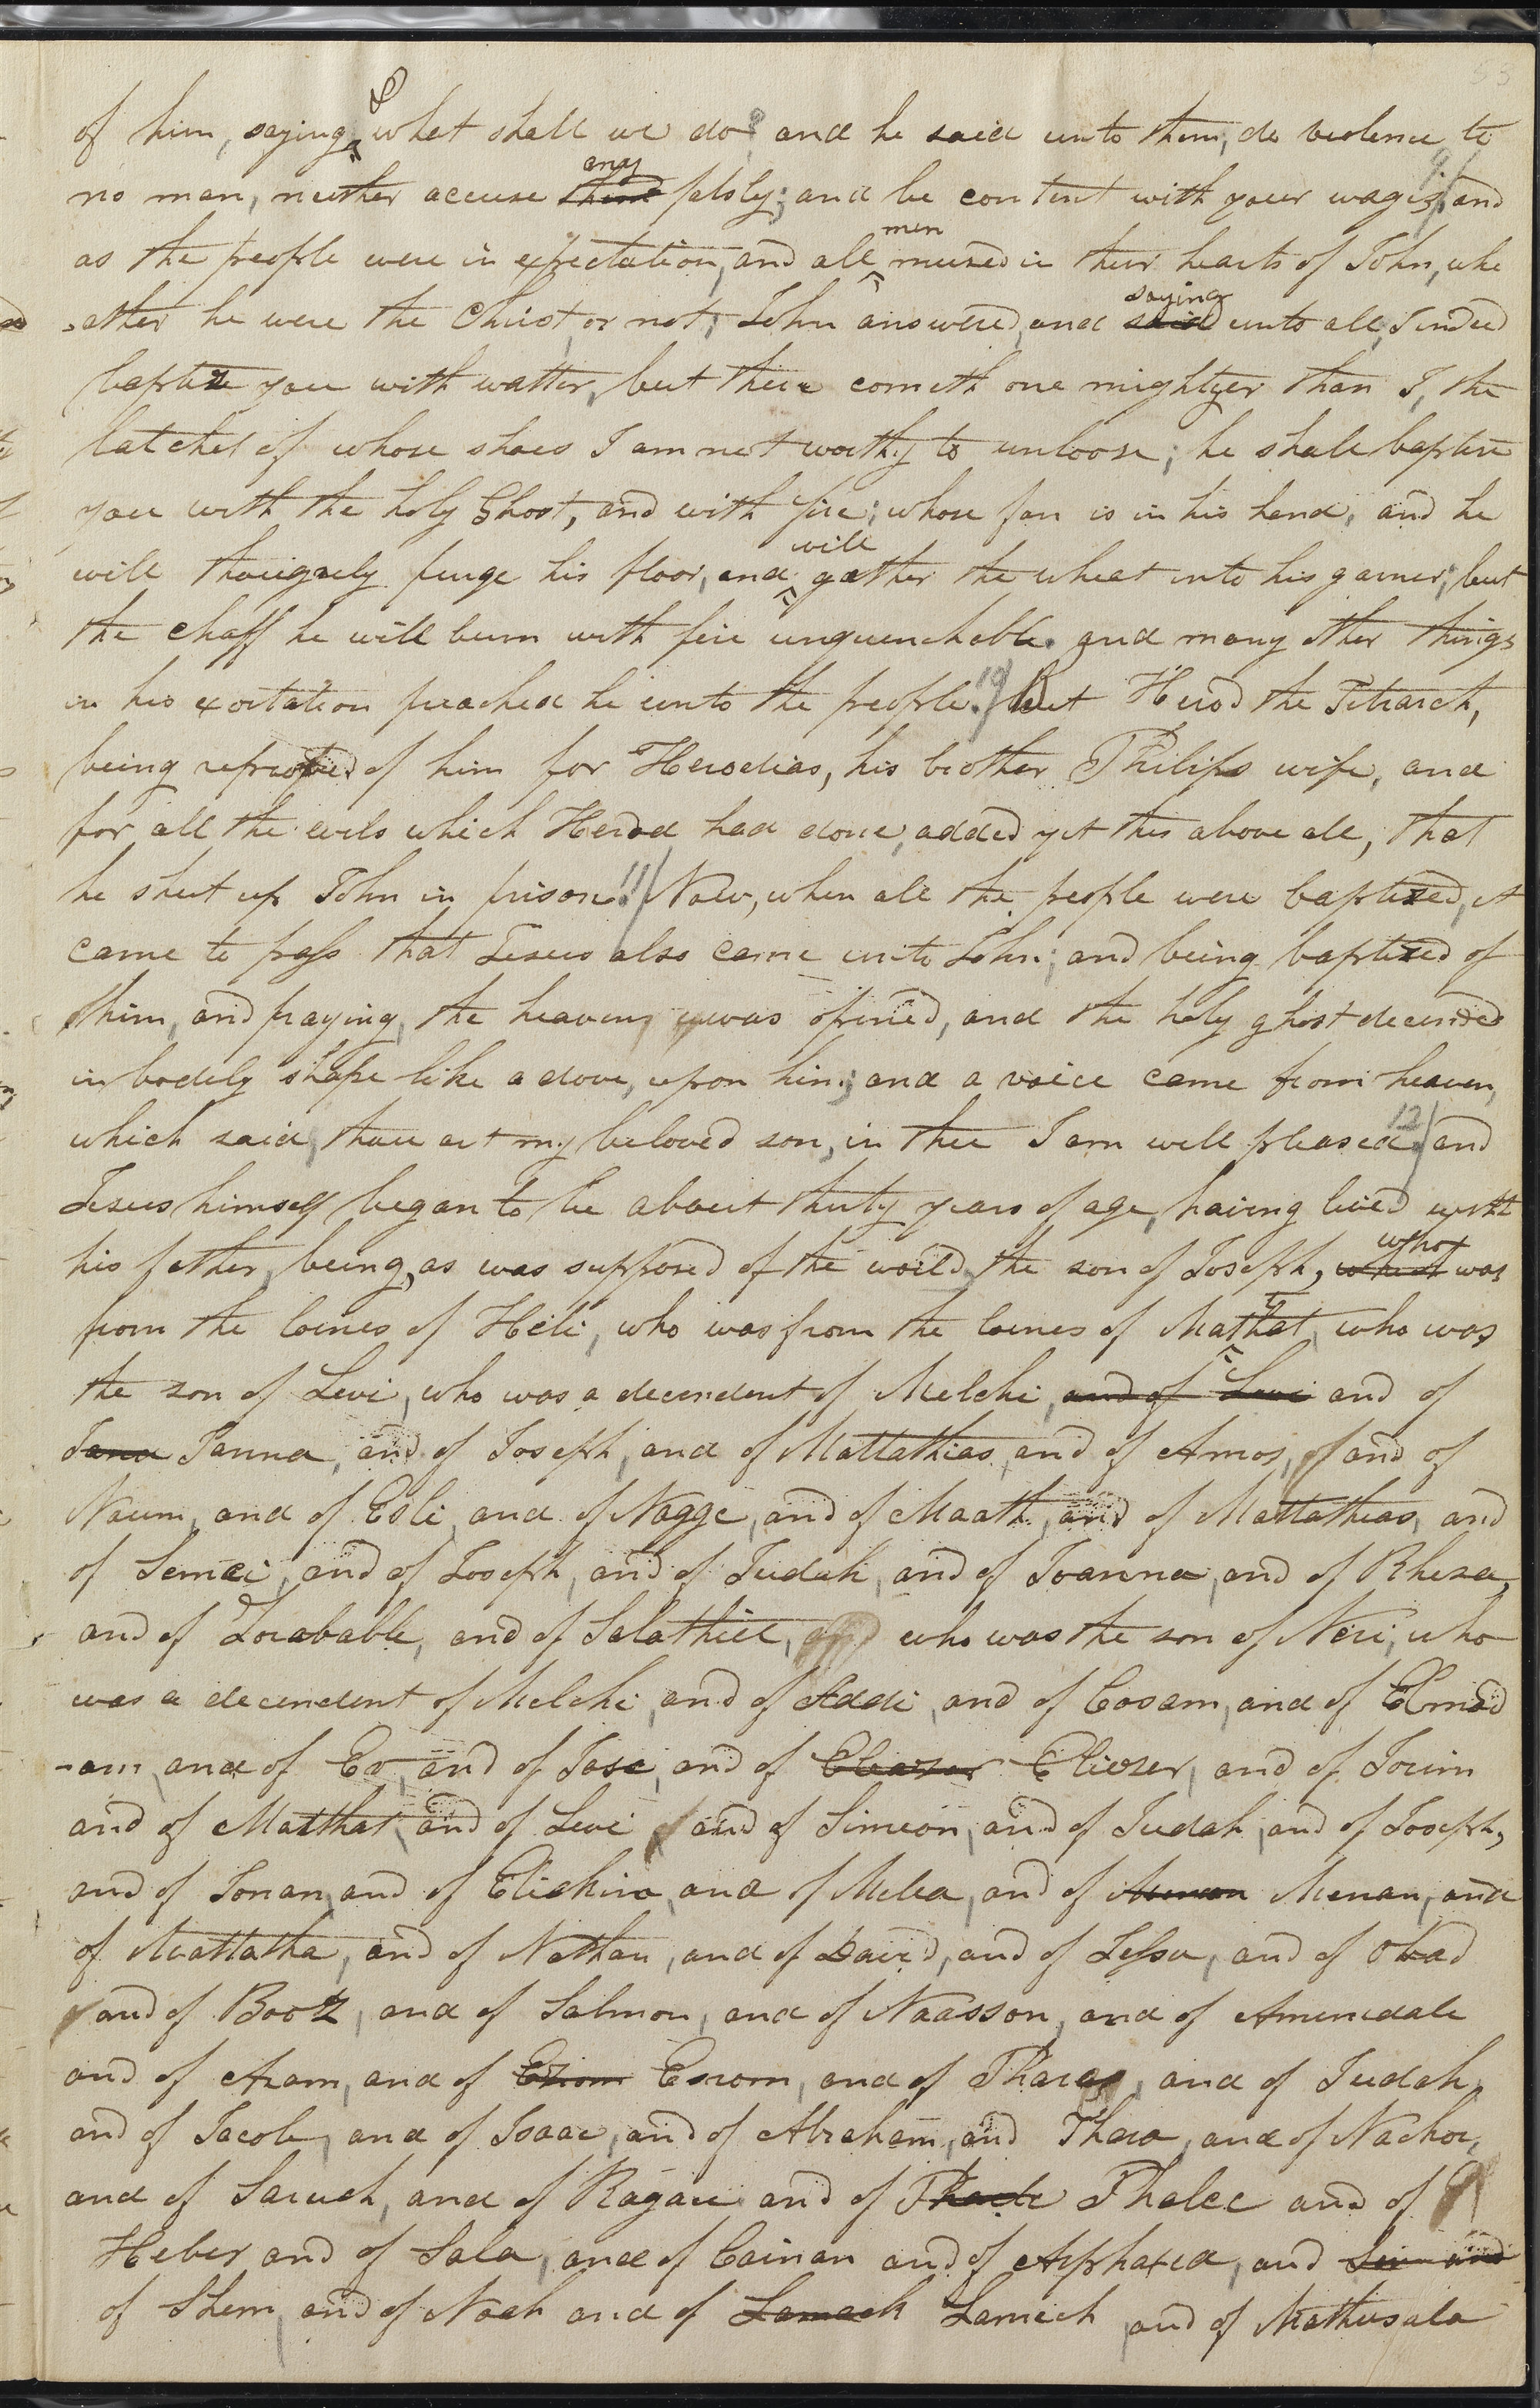 53
of him, saying, & what shall we do? and he said unto them, do violence to
no man, neither accuse any them falsly; and be content with your wages. 9 and
as the people were in expectation, and all men mused in their hearts of John, whe
-ether he were the Christ, or not; John answered, and saying said unto all, I indeed
baptize you with watter, but there cometh one mightyer than I, the
latchet of whose shoes I am not worthy to unloose; he shall baptize
you with the holy Ghost, and with fire; whose fan is in his hand, and he
will thourguely purge his floor, and will gather the wheat into his garner; but
the chaff he will burn with fire unquenchable. and many other things
in his exortation preached he unto the people. 10 But Herod the Tetrarch,
being reproved of him for Herodias, his brother Philips wife, and
for all the evils which Herod had done, added yet this above all, that
he shut up John in prison. 11 Now, when all the people were baptized, it
came to pass that Jesus also came unto John; and being baptized of
him, and praying, the heaven was opened, and the holy ghost decended
in bodely shape like a dove, upon him; and a voice came from heaven,
which said, thou art my beloved son, in thee I am well pleased. 12 and
Jesus himself began to be about thirty years of age, having lived with
his father, being, as was supposed of the world, the son of Joseph, who which was
from the loines of Heli, who was from the loines of Matthat, who was
the son of Levi, who was a decendent of Melchi, and of Levi and of
Jana Janna, and of Joseph, and of Mattathias, and of Amos, and of
Naum, and of Esli, and of Nagge, and of Maath, and of Mattathias, and
of Semei, and of Joseph, and of Judah, and of Joanna, and of Rhesa,
and of Zorabable, and of Salathiel, who was the son of Neri, who
was a decendent of Melchi, and of Addi, and of Cosam, and of Elmod
-am, and of Er, and of Jose, and of Eleazer Eliezer, and of Jorim
and of Matthat, and of Levi and of Simeon, and of Judah, and of Joseph,
and of Jonan, and of Eliakim, and of Melea, and of Menan, and
of Mattatha, and of Nathan, and of David, and of Jesse, and of Obed
and of Booz, and of Salmon, and of Naasson, and of Amenidab
and of Aram, and of Ezrom Esrom, and of Phares, and of Judah,
and of Jacob, and of Isaac, and of Abraham, and Thara, and of Nachor,
and of Saruch, and of Ragau and of Phalec and of
Heber and of Sala, and of Cainan and of Arphaxad, and
of Shem, and of Noah and of Lamach Lamech and of Mathusala